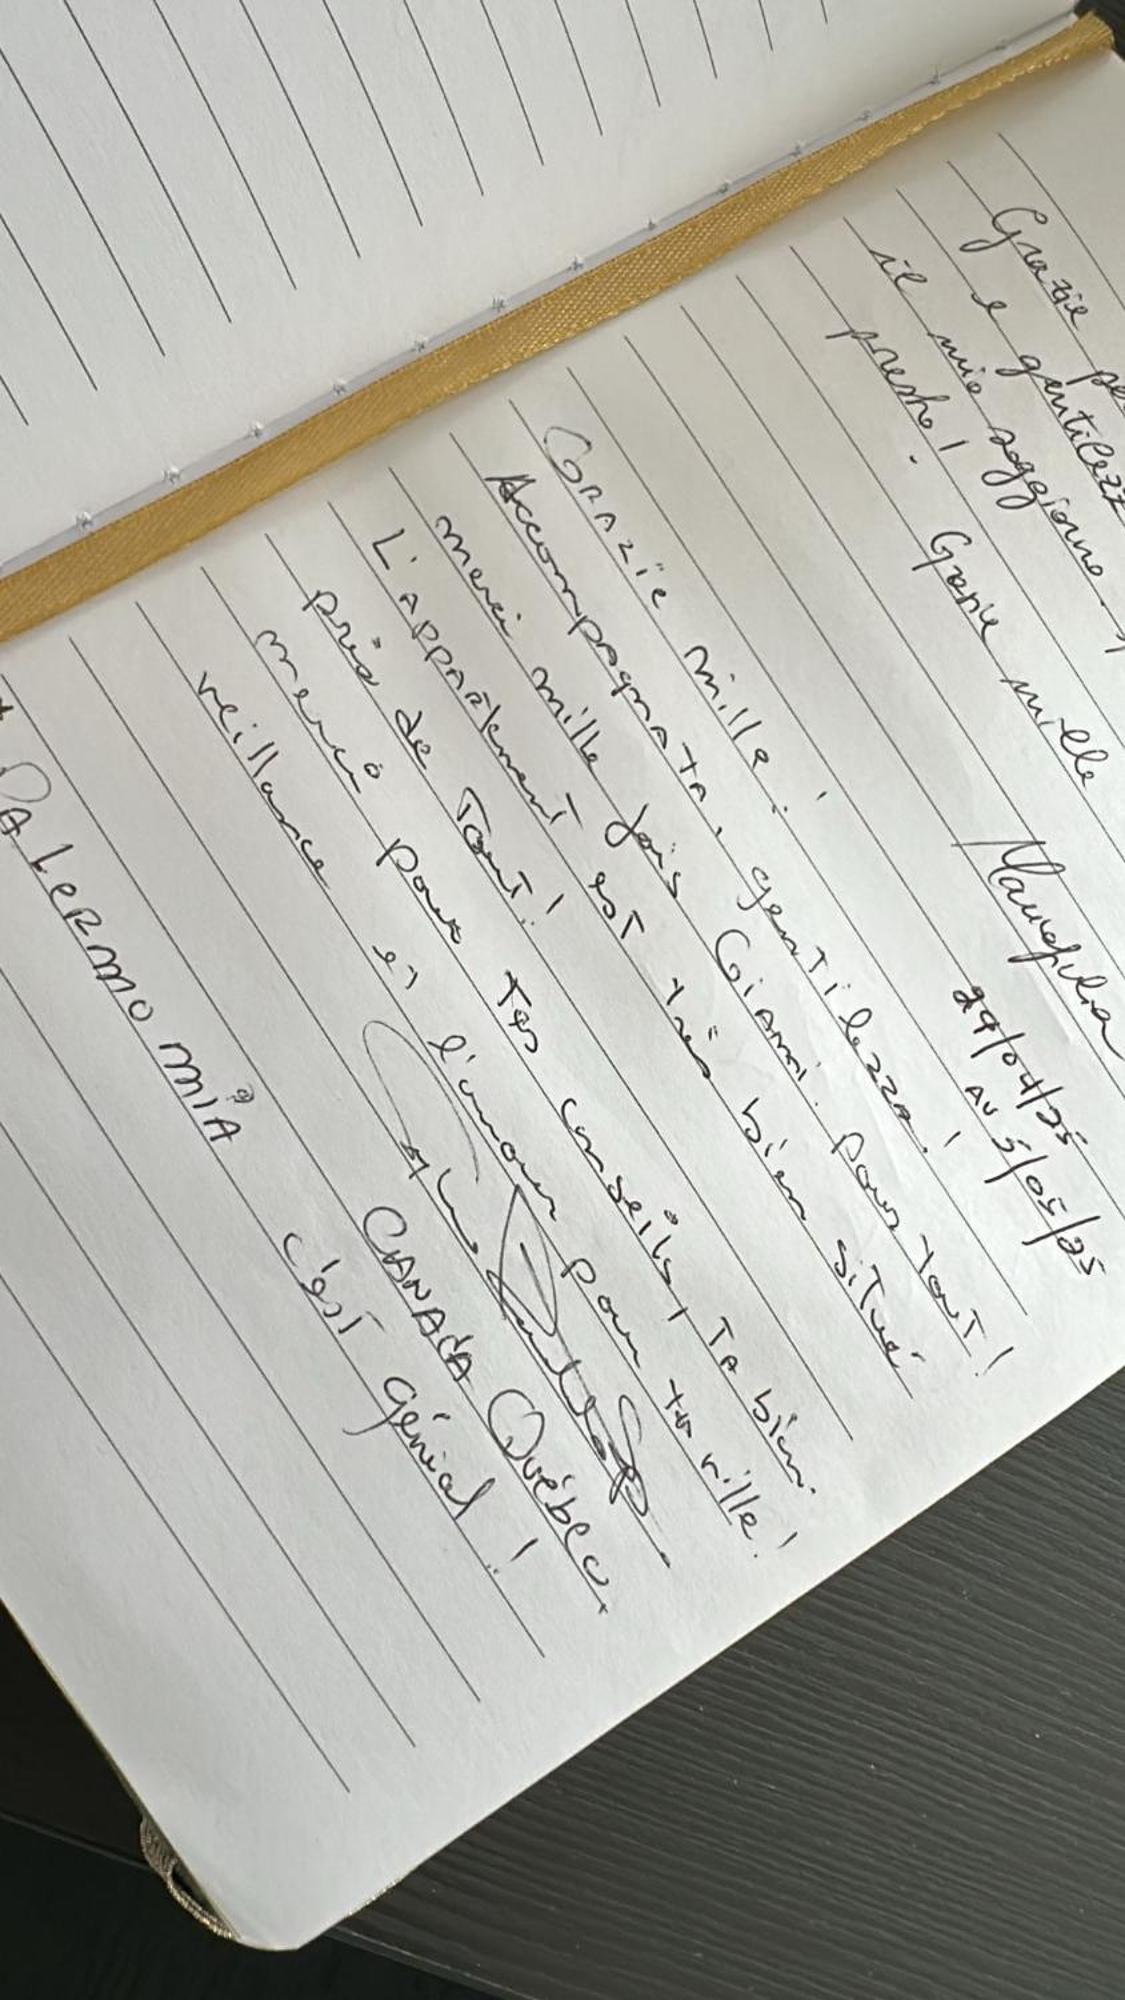 Grazie
e gentilezz
il mio soggiorno
presto! Grazie mille
29/04/25
AU 5/05/25
GRAZie mille!
Accompagnata, gentilezza!
merci mille fois Gianni. Pour tout!
L'appartement est très bien situé
près de Tout!
merci pour tes conseils, TA bien-
veillance et l'amour pour ta ville!
CANADA Québec
PALERMO MIA c'est génial!